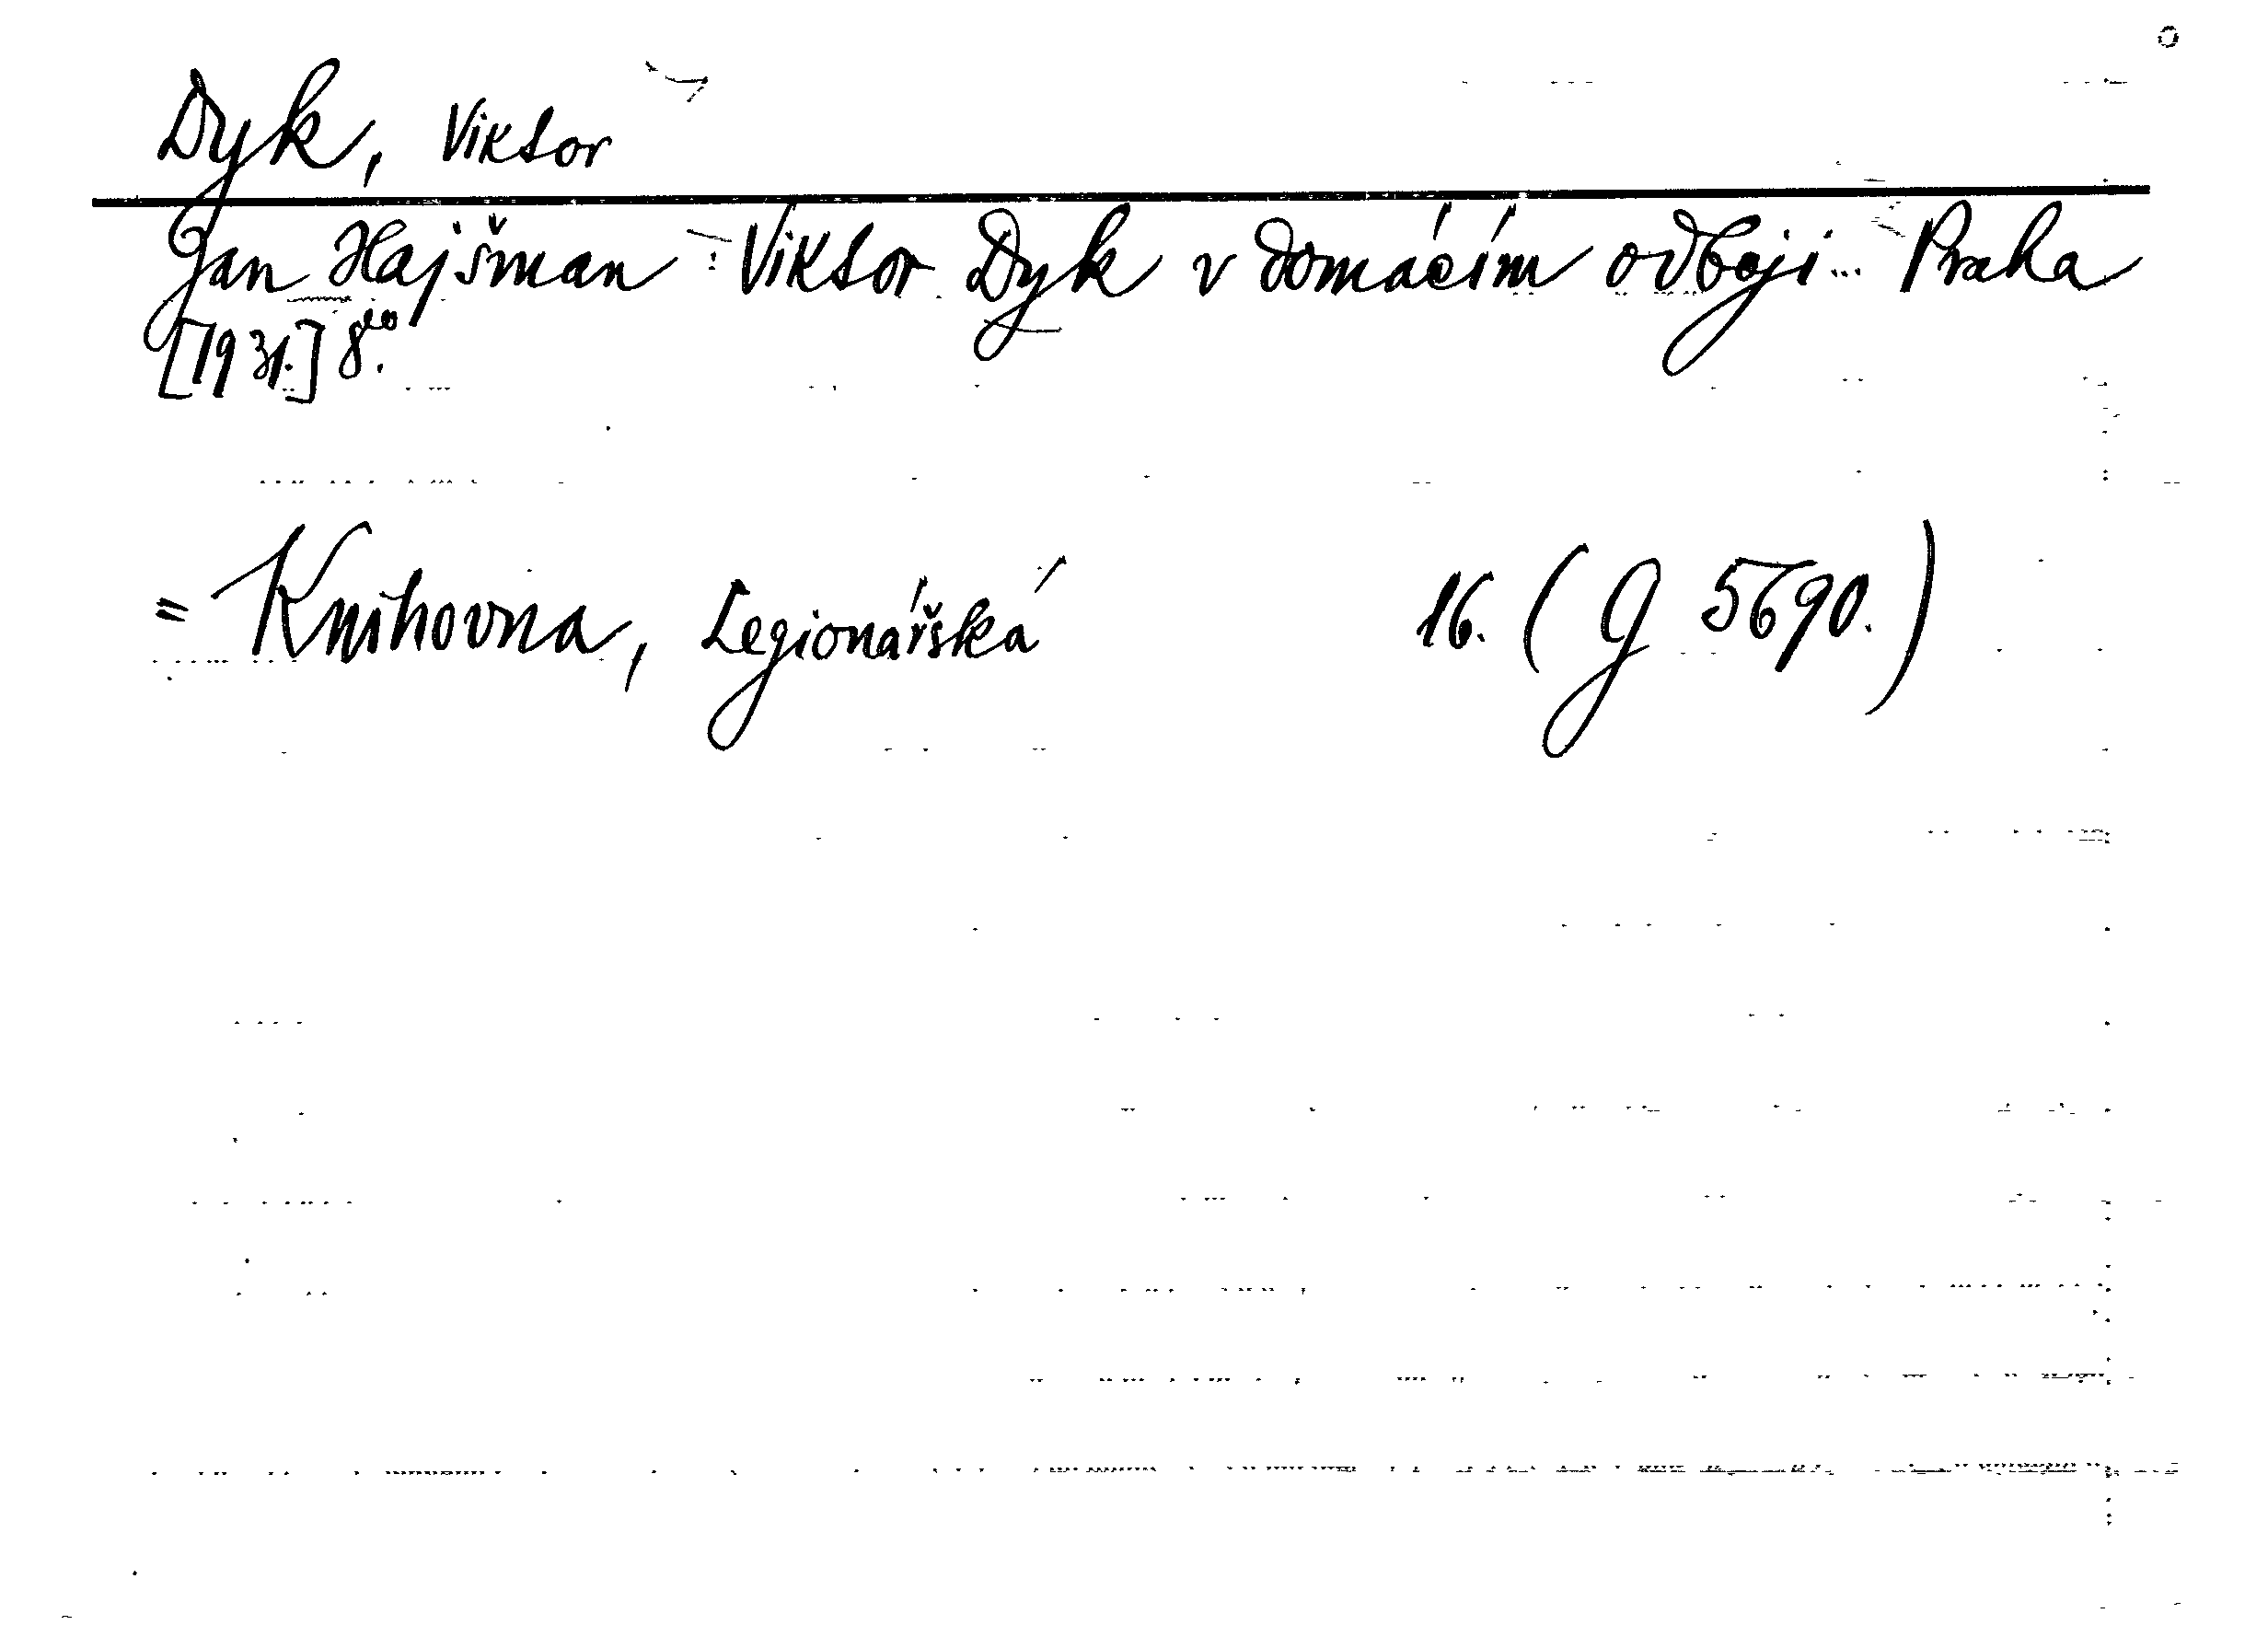 Dyk, Viktor
Jan Hajšman: Viktor Dyk v domácím odboji... Praha
[1931.] 8°.
= Knihovna, Legionářská 16. (G 5690.)